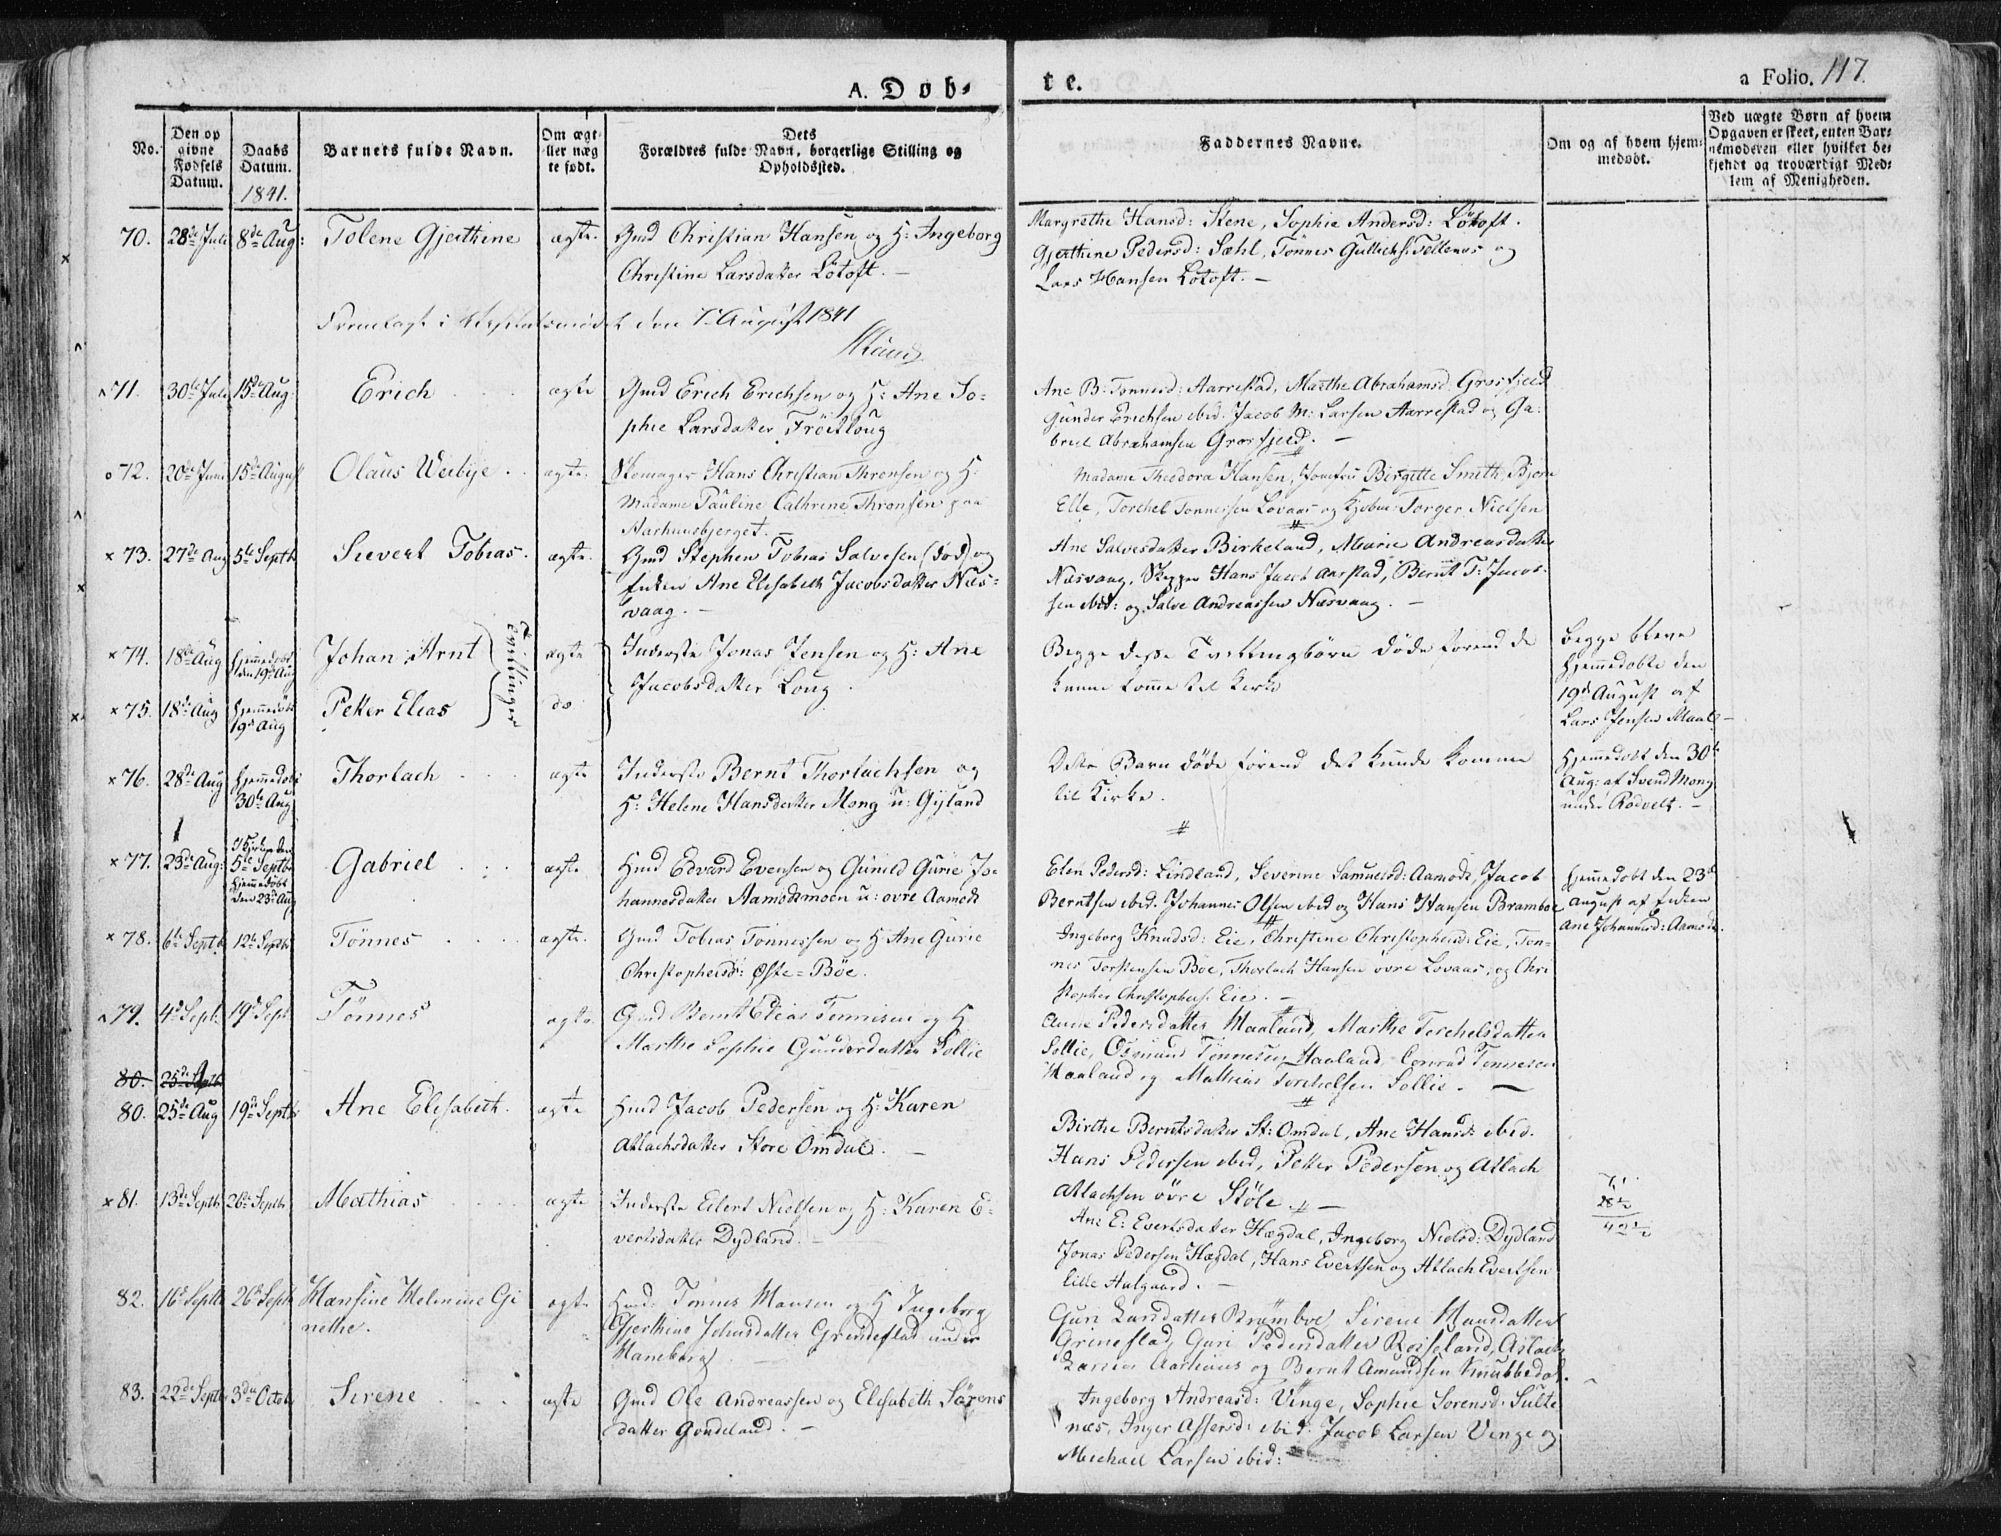 A. Døb-
te.
a Folio. 117.
No.
Den op
givne
Fødsels
Datum.
Daabs
Datum.
1841.
Barnets fulde Navn.
Om ægt
ller uæg
te født.
Dets
Forældres fulde Navn, borgerlige Stilling og
Opholdssted.
Faddernes Navne.
Om og af hvem hjem-
medøbt.
Ved uægte Børn af hvem
Opgaven er skeet, enten Bar-
nemoderen eller hvilket be-
kjendt og troværdigt Med-
lem af Menigheden.
70. 28de Juli 8de Aug: Tolene Gjerthine ægte. Gmd Christian Hansen og H: Ingeborg
Christine Larsdatter Lötoft. —
Margrethe Hansd: Stene, Sophie Andersd: Lötoft.
Gjerthine Pedersd: Sæhl, Tönnes Gullichs. Tellenæs og
Lars Hansen Lötoft. —
Fremlagt i den 7 August 1841
71. 30te Juli 15de Aug: Erich ægte Gmd Erich Erichsen og H: Ane So-
phie Larsdatter Fröitloug
Ane B: Tönnesd: Aarrestad, Marthe Abrahamsd. Grosfjeld
Gunder Erichsen ibid. Jacob M: Larsen Aarrestad og Ga-
briel Abrahamsen Grosfjeld. —
72. 20de Juni 15de August Olaus Weibye ægte. Skomager Hans Christian Thronsen og H:
Madame Pauline Cathrine Thronsen paa
Aarhuusbjerget. —
Madame Theodora Hansen, Jomfru Birgitte Smith, Bjorn
Elle, Torchel Tönnessen Lovaas og Torger Nielsen
73. 27de Aug 5te Septb Sievert Tobias. ægte. Gmd Stephen Tobias Salvesen (död) og
Enken Ane Elisabeth Jacobsdatter Næs-
vaag. —
Ane Salvesdatter Birkeland, Marie Andreasdatter
Næsvaag, Skipper Hans Jacob Aarstad, Bernt T: Jacob-
sen ibid: og Salve Andreassen Næsvaag. —
74. 18de Aug Hjemmedøbt
den 19de Aug Johan Arnt ægte Inderste Jonas Jensen og H: Ane
Jacobsdatter Loug.
Tvillinger
Begge disse Tvillingbörn døde förend de
kunne komme til Kirke
Begge bleve
Hjemmedøbte den
19de August af
Lars Jensen Maal. —
75. 18de Aug Hjemmedøbt
19de Aug Petter Elias do
76. 28de Aug Hjemmedøbt
30te Aug Thorlach ægte Inderste Bernt Thorlachsen og
H: Helene Hansdatter Mong u: Gyland
Dette Barn døde förend det kunde komme
til Kirke.
Hjemmedøbt den 30te
Aug: af Svend Mong
under Rødvelt. —
77. 23de Aug: I Kirken den
5te Septb
Hjemmedøbt
den 23de Aug Gabriel ægte Hmd Edvard Evensen og Gunild Gurie Jo-
hannesdatter Aamodsmoen u: övre Aamodt
Elen Pedersd: Lindland, Severine Samuelsd: Aamodt, Jacob
Berntsen ibid. Johannes Olsen ibid og Hans Hansen Bramboe
Hjemmedøbt den 23de
August af Enken
Ane Johannesd: Aamodt.
78. 6te Septb 12te Septb Tönnes ægte. Gmd Tobias Tönnessen og H Ane Gurie
Christophersd: Øste-Böe.
Ingeborg Knudsd: Eie, Christine Christophersd: Eie, Tön-
nes Torstensen Böe, Thorlach Hansen övre Lovaas, og Chri
stopher Christophers. Eie. —
79. 4de Sept. 19de Sept Tönnes ægte. Gmd Bernt Elias Tönnesen og H
Marthe Sophie Gundersdatter Sollie
Anne Pedersdatter Maaland, Marthe Torchelsdatter
Sollie, Osmund Tönnesen Haaland Conrad Tönnesen
Maaland og Mathias Torchelsen Sollie. —
80. 25de Septb
80. 25de Aug 19de Septb Ane Elisabeth. ægte Hmd Jacob Pedersen og H: Karen
Atlachsdatter Store Omdal. —
Birthe Berntsdatter St: Omdal, Ane Hansd: ibid.
Hans Pedersen ibid, Petter Pedersen og Atlach
Atlachsen övre Stöle. —
81. 13de Septb 26de Septb Mathias ægte Inderste Eilert Nielsen og H: Karen E-
vertsdatter Dydland. —
Ane E: Evertsdatter Hægdal, Ingeborg Nielsd: Dydland
Jonas Pedersen Hægdal, Hans Evertsen og Atlach Evertsen
lille Aalgaard. —
82. 16de Septb 26de Septb Hansine Helmine Gi
nethe. ægte Hmd. Tönnes Hansen og H Ingeborg
Gjerthine Johnsdatter Grendestad under
Haneberg —
Guri Larsdatter Bramboe, Sirene Hansdatter
Grinestad, Guri Pedersdatter Roiseland, Aslach
Larsen Aarhuus og Bernt Amundsen Knubbedal.
83. 22de Septb 3die Octob Sirene ægte Gmd Ole Andreassen og Elisabeth Sörens
datter Gondeland. —
Ingeborg Andreasd: Vinge, Sophie Sorensd: Sulte
næs, Inger Assersd: ibid. Jacob Larsen Vinge og
Michael Larsen ibid: